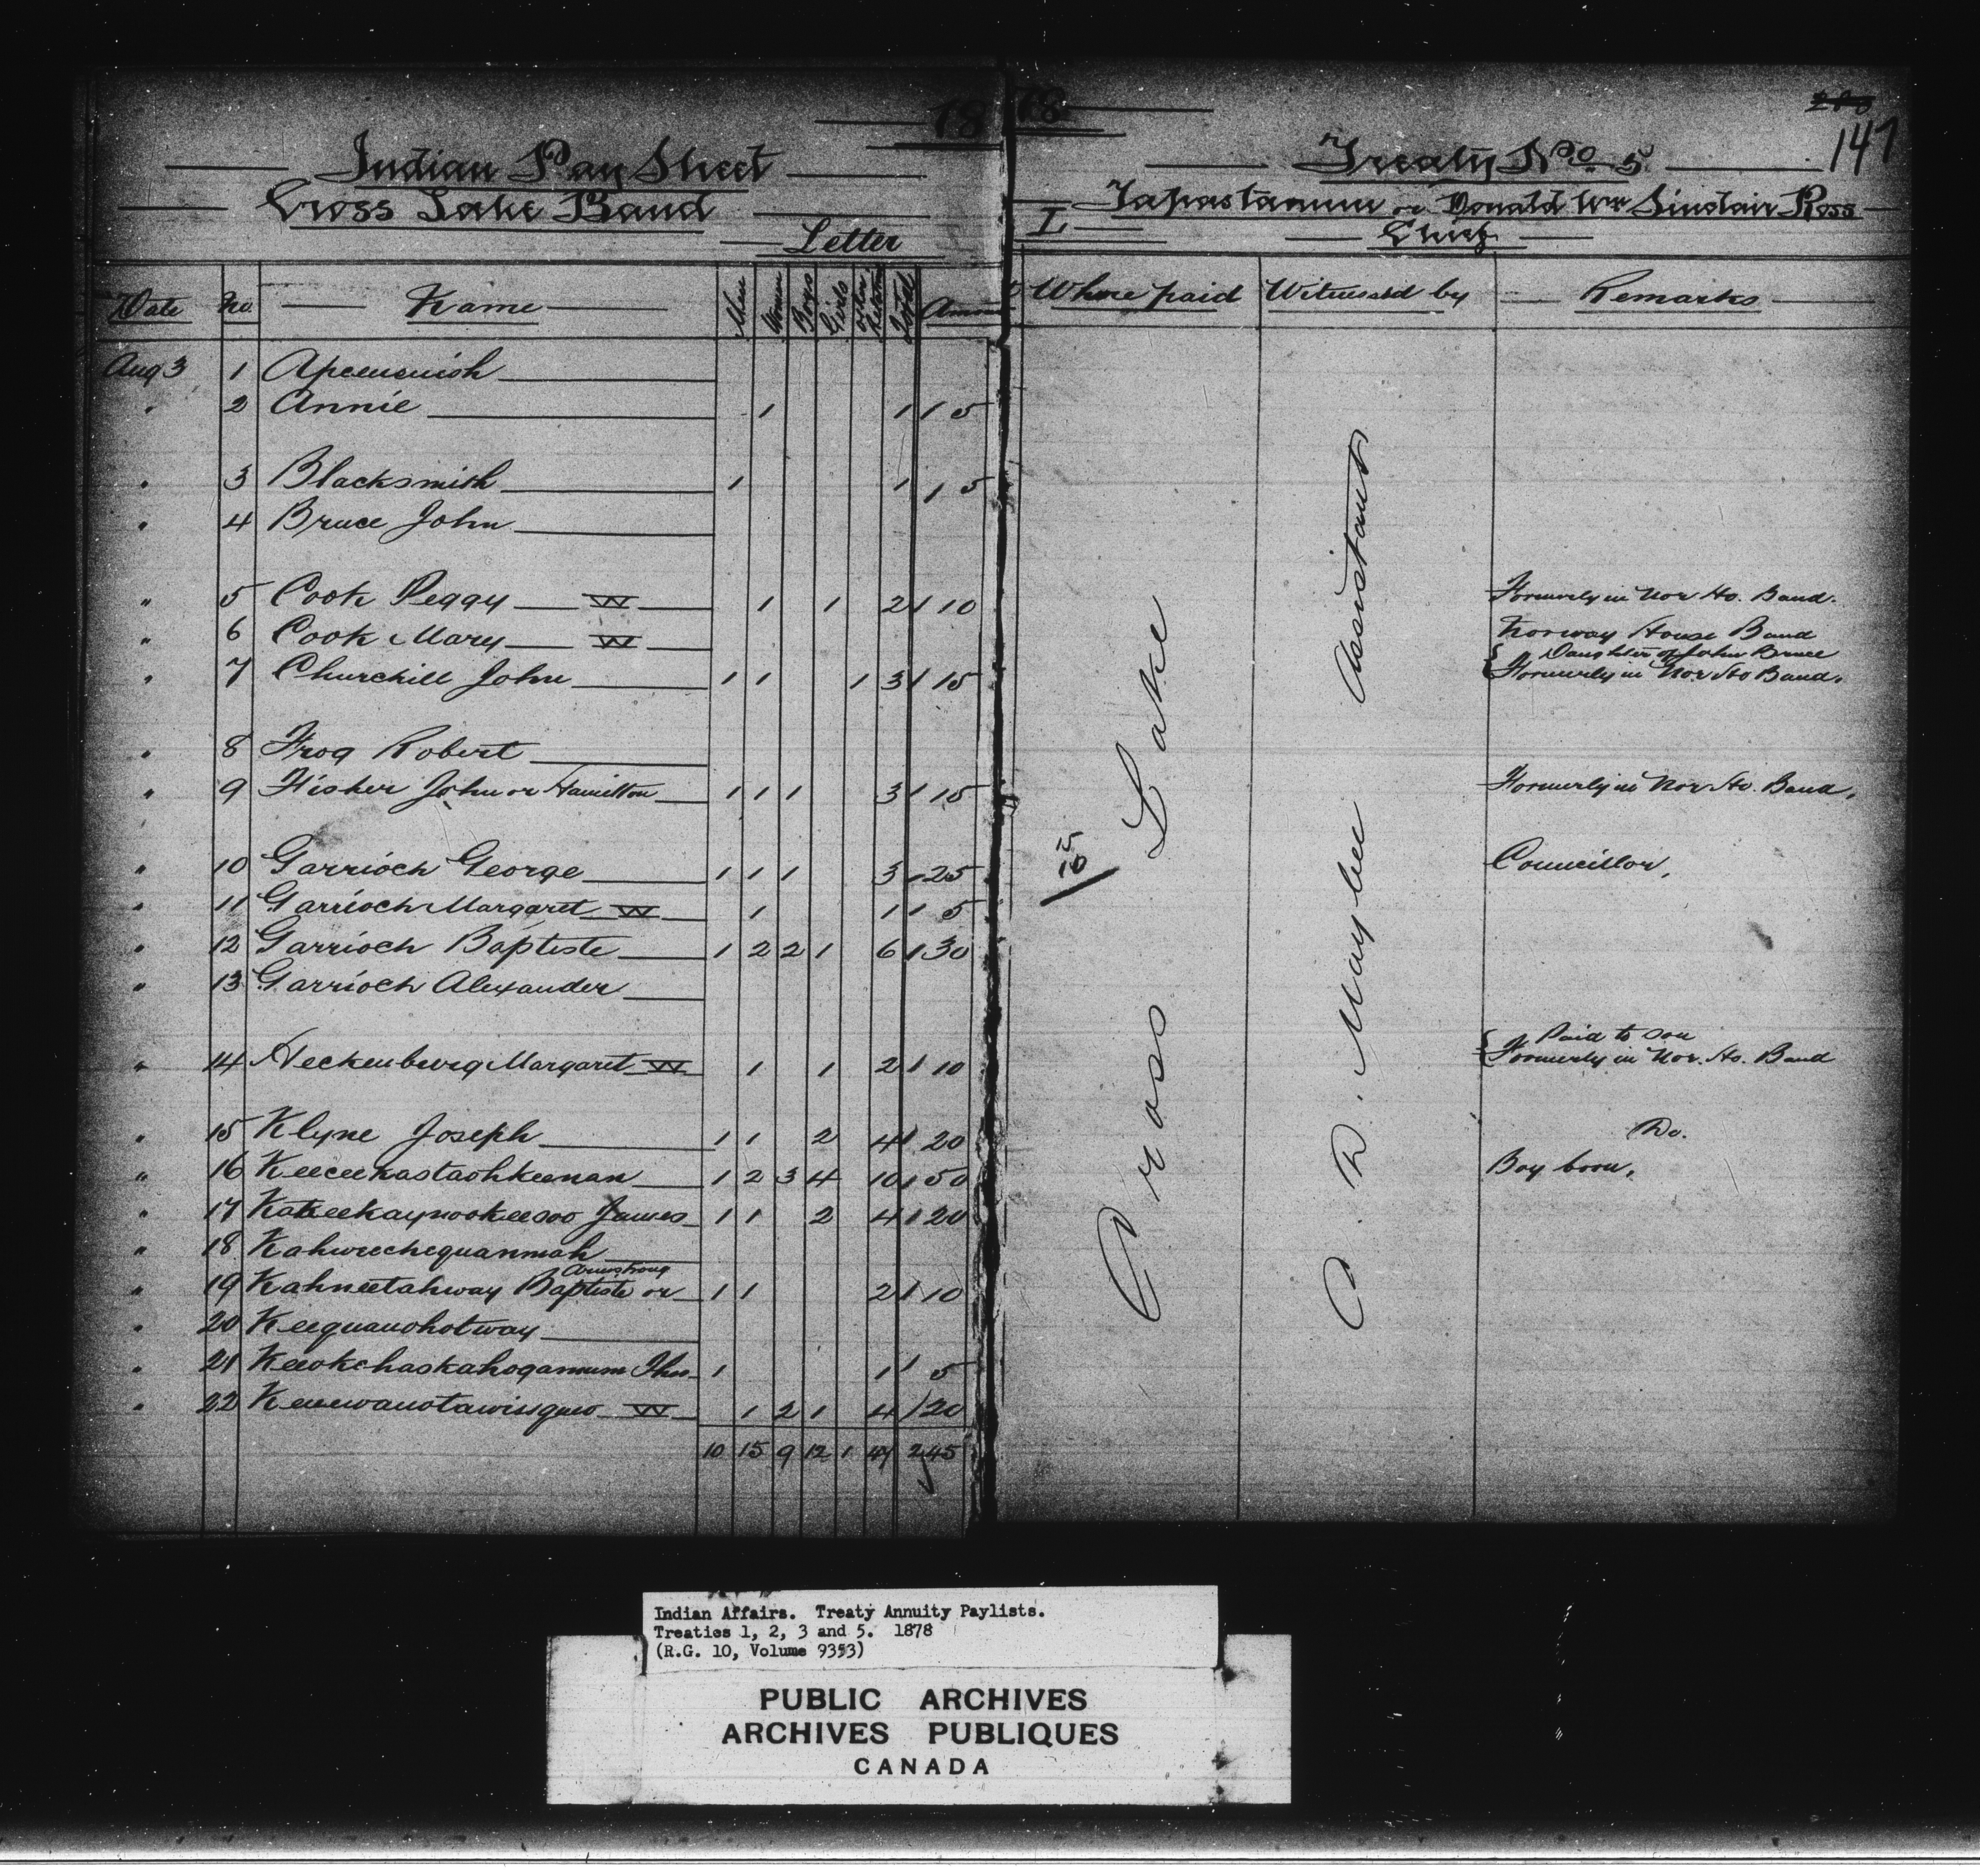 18 18
147
Indian Pay Sheet
Cross Lake Band
Letter
Treaty No 5
Tapastanum or Donald Wm Sinclair Ross
L
Chief
Date No. Name Men Women Boys Girls Total Where paid Witnessed by Remarks
Aug 3 1
" 2 Annie 1 1 1 5
" 3 Blacksmith 1 1 1 5
" 4 Bruce John
" 5 Cook Peggy W 1 1 2 1 10 Formerly in Nor Ho. Band.
" 6 Cook Mary W Norway House Band
" 7 Churchill John 1 1 1 3 1 15 { Daughter of John Bruce
Formerly in Nor Ho Band.
" 8 Frog Robert
" 9 Fisher John or Hamilton 1 1 1 3 1 15 Formerly in Nor Ho. Band.
" 10 Garrioch George 1 1 1 3 1 25 15 10 Councillor.
" 11 Garrioch Margaret W 1 1 1 5
" 12 Garrioch Baptiste 1 2 2 1 6 1 30
" 13 Garrioch Alexander
" 14 Heckenburg Margaret W 1 1 2 1 10 { Paid to son
Formerly in Nor. Ho. Band
" 15 Klyne Joseph 1 1 2 4 1 20 Do.
" 16 Keeceekastaohkeenan 1 2 3 4 10 1 50 Boy born.
" 17 Kakeekaynookeesoo James 1 1 2 4 1 20
" 18 Kahweechequanmah
Armstrong
" 19 Kahneetahway Baptiste or 1 1 2 1 10
" 20
" 21 1 1 1 5
" 22 W 1 2 1 4 1 20
10 15 9 12 1 47 245
Cross Lake
C. D. Maybee Assistant
Indian Affairs. Treaty Annuity Paylists.
Treaties 1, 2, 3 and 5. 1878
(R.G. 10, Volume 9353)
PUBLIC ARCHIVES
ARCHIVES PUBLIQUES
CANADA